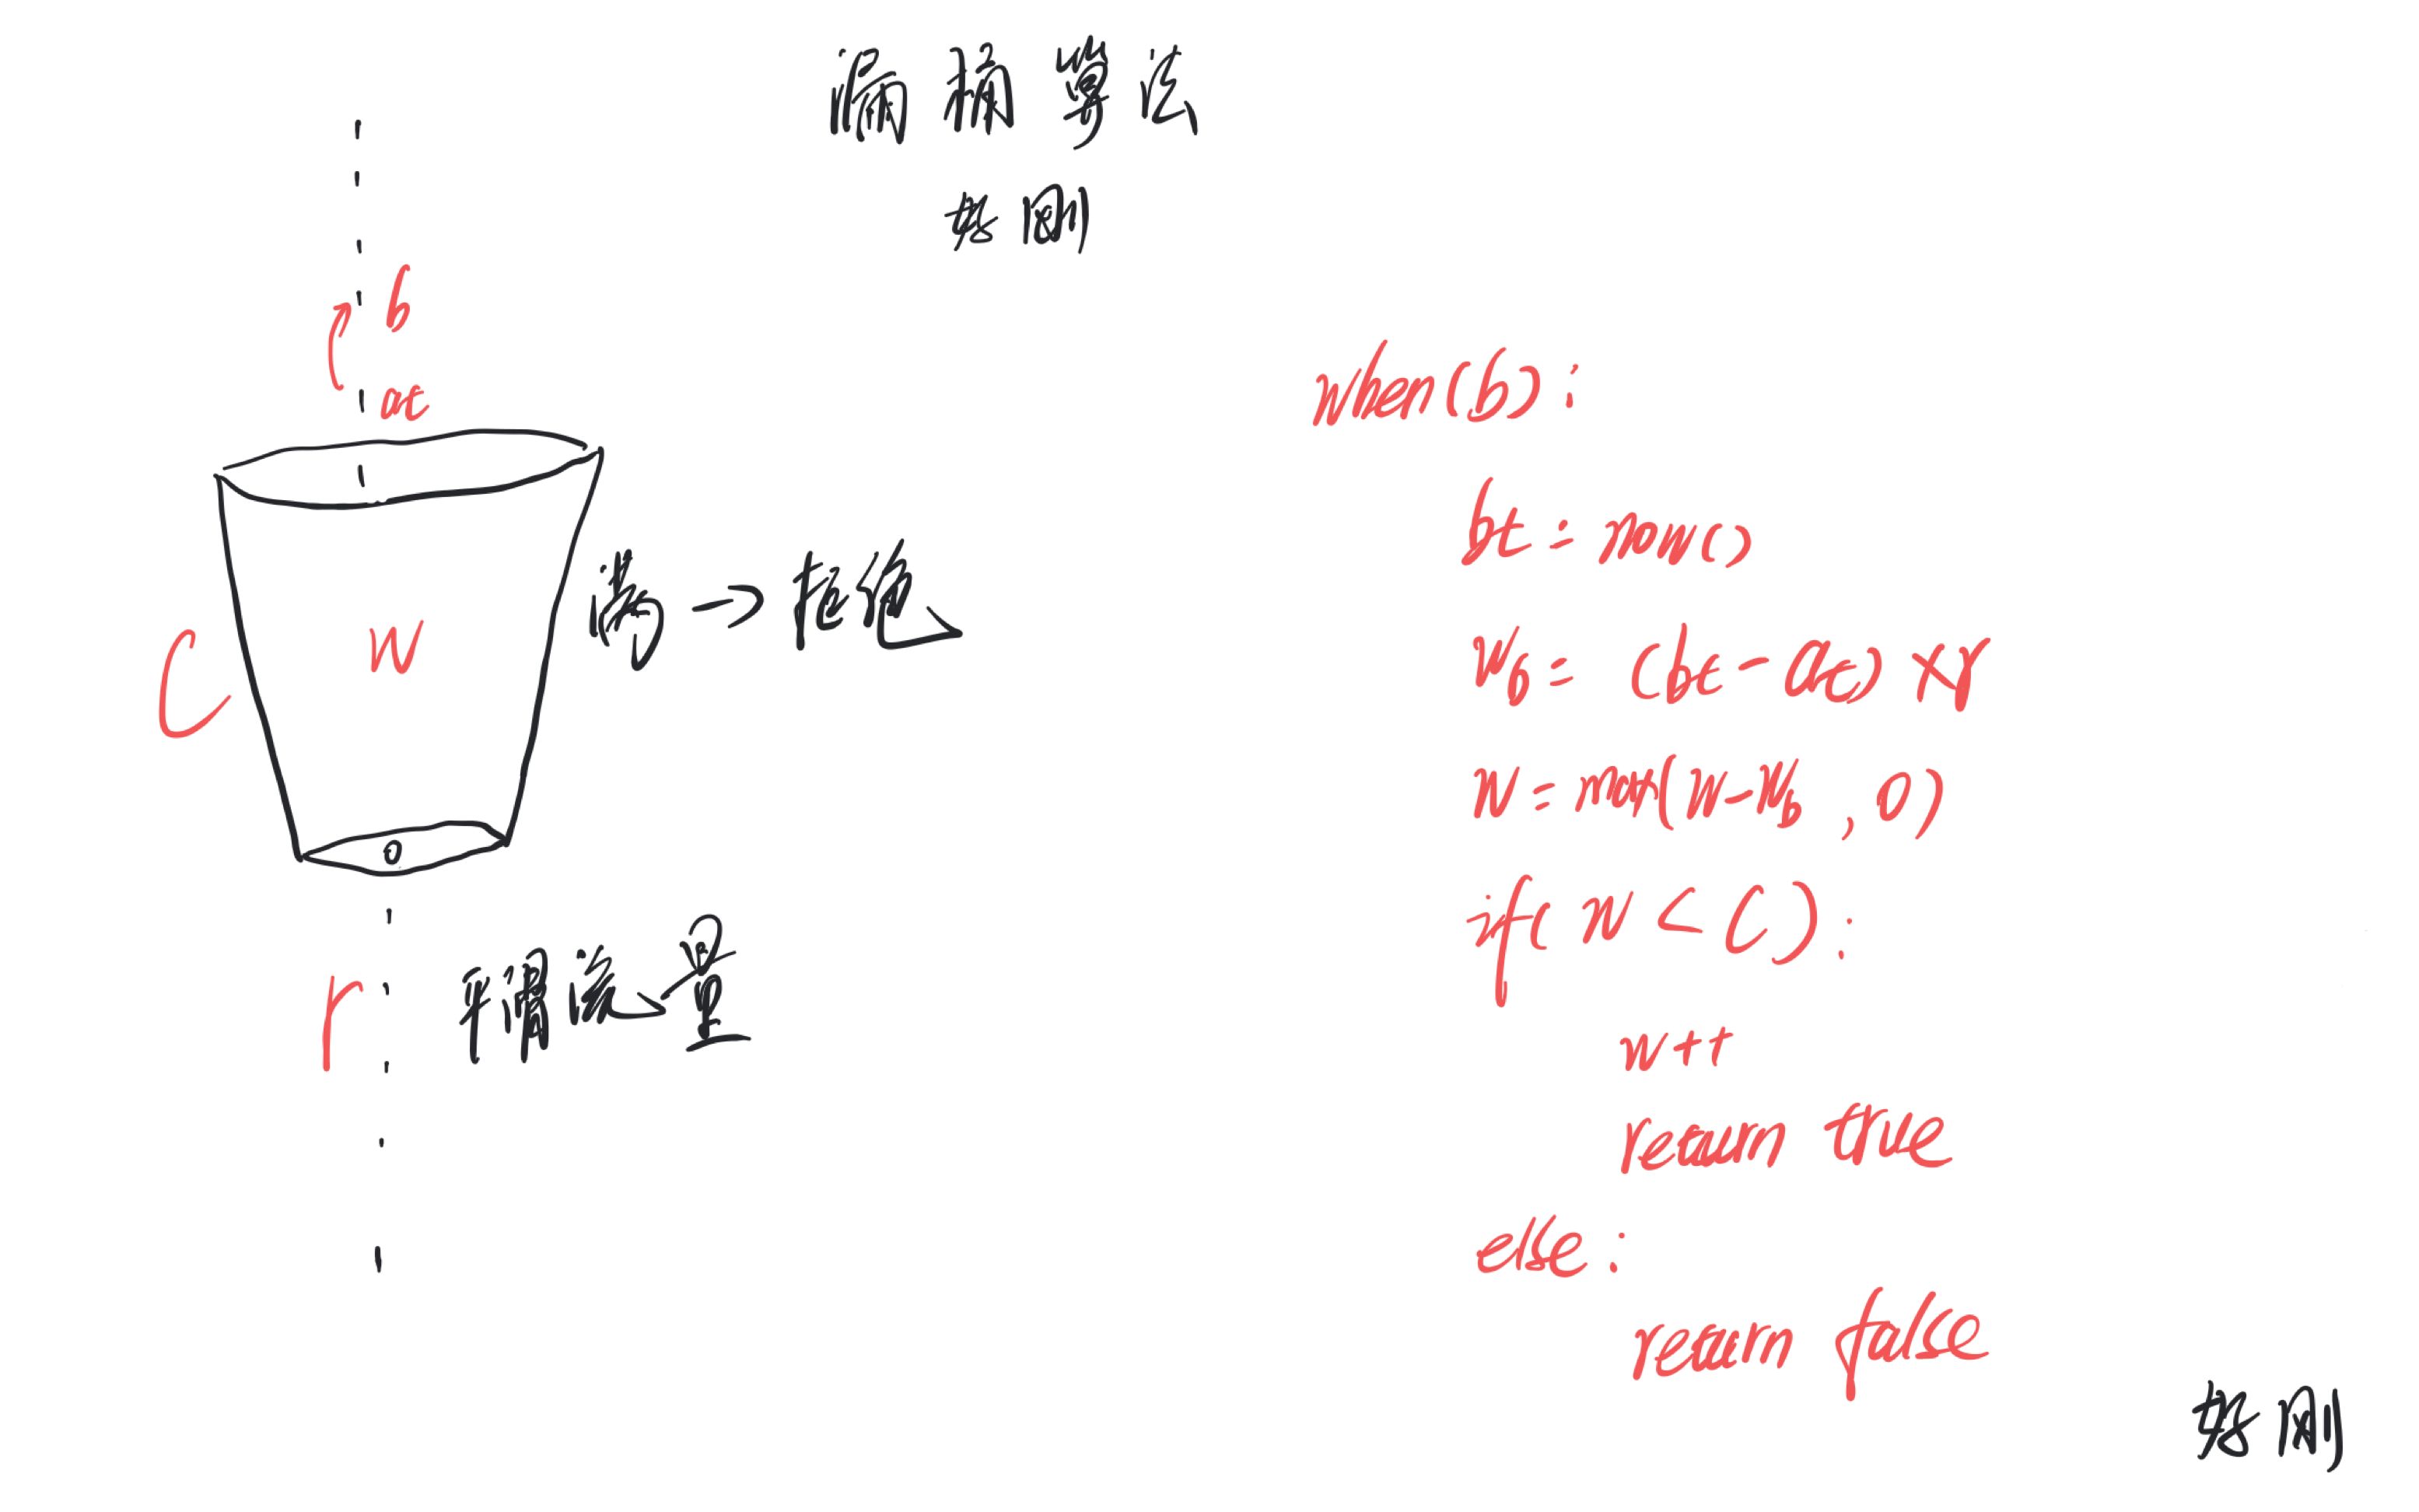 漏桶算法
好刚
b
at
满→拒绝
C
W
r
平滑流量
when(b):
bt = now()
Wb = (bt-at)×r
W = max(W-Wb, 0)
if( W < C):
w++
return true
else:
return false
好刚